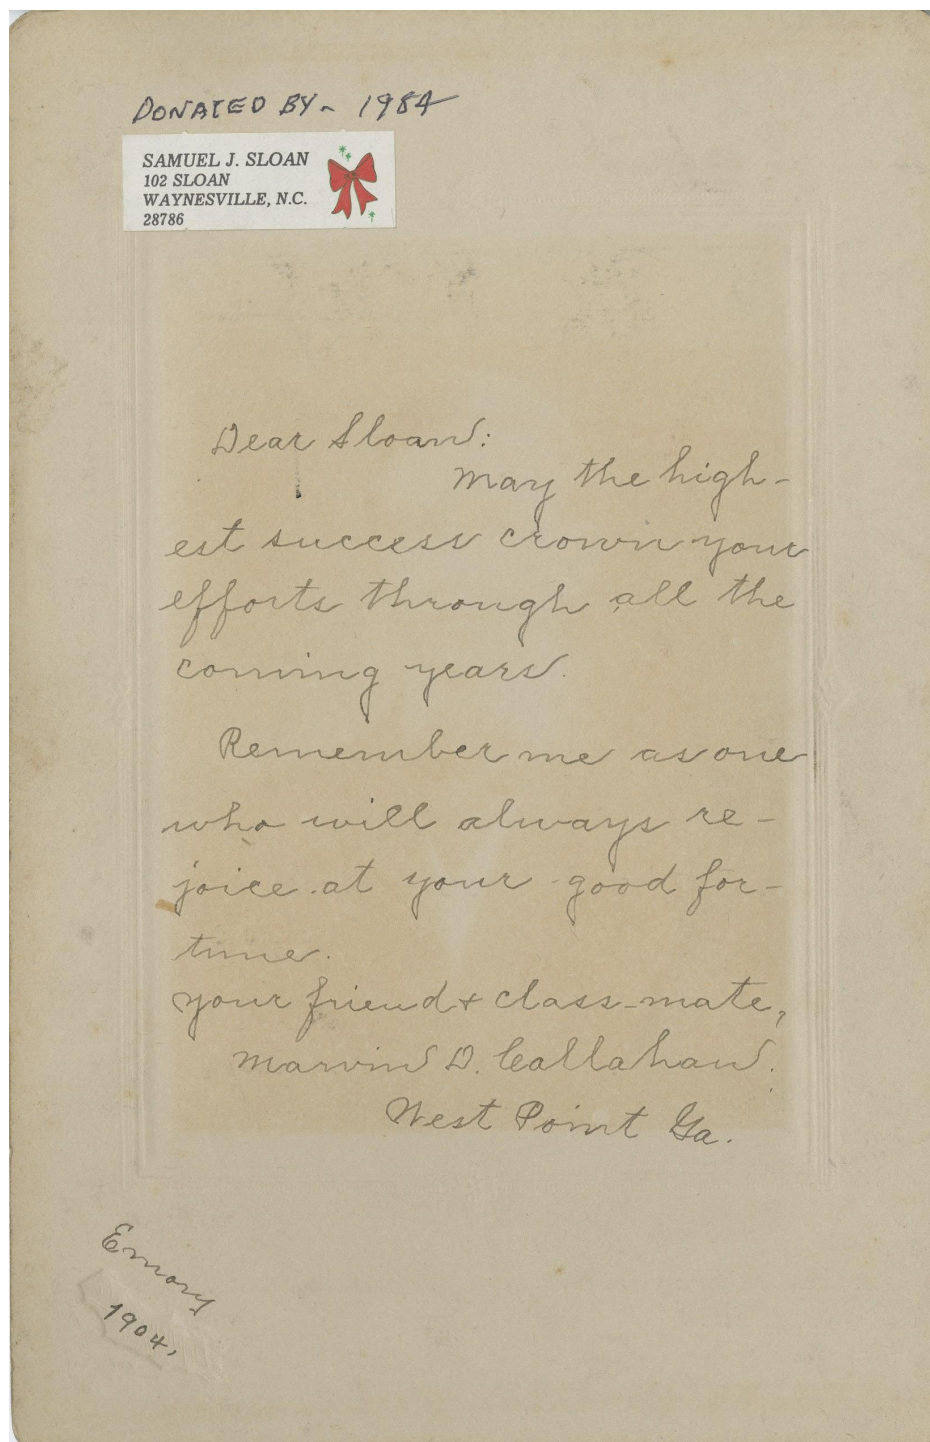 DONATED BY - 1984
SAMUEL J. SLOAN
102 SLOAN
WAYNESVILLE, N.C.
28786
Dear Sloan:
May the high-
est success crown your
efforts through all the
coming years.
Remember me as one
who will always re-
joice at your good for-
tune.
Your friend & class-mate,
Marvin D. Callahan.
West Point Ga.
Emory
1904,